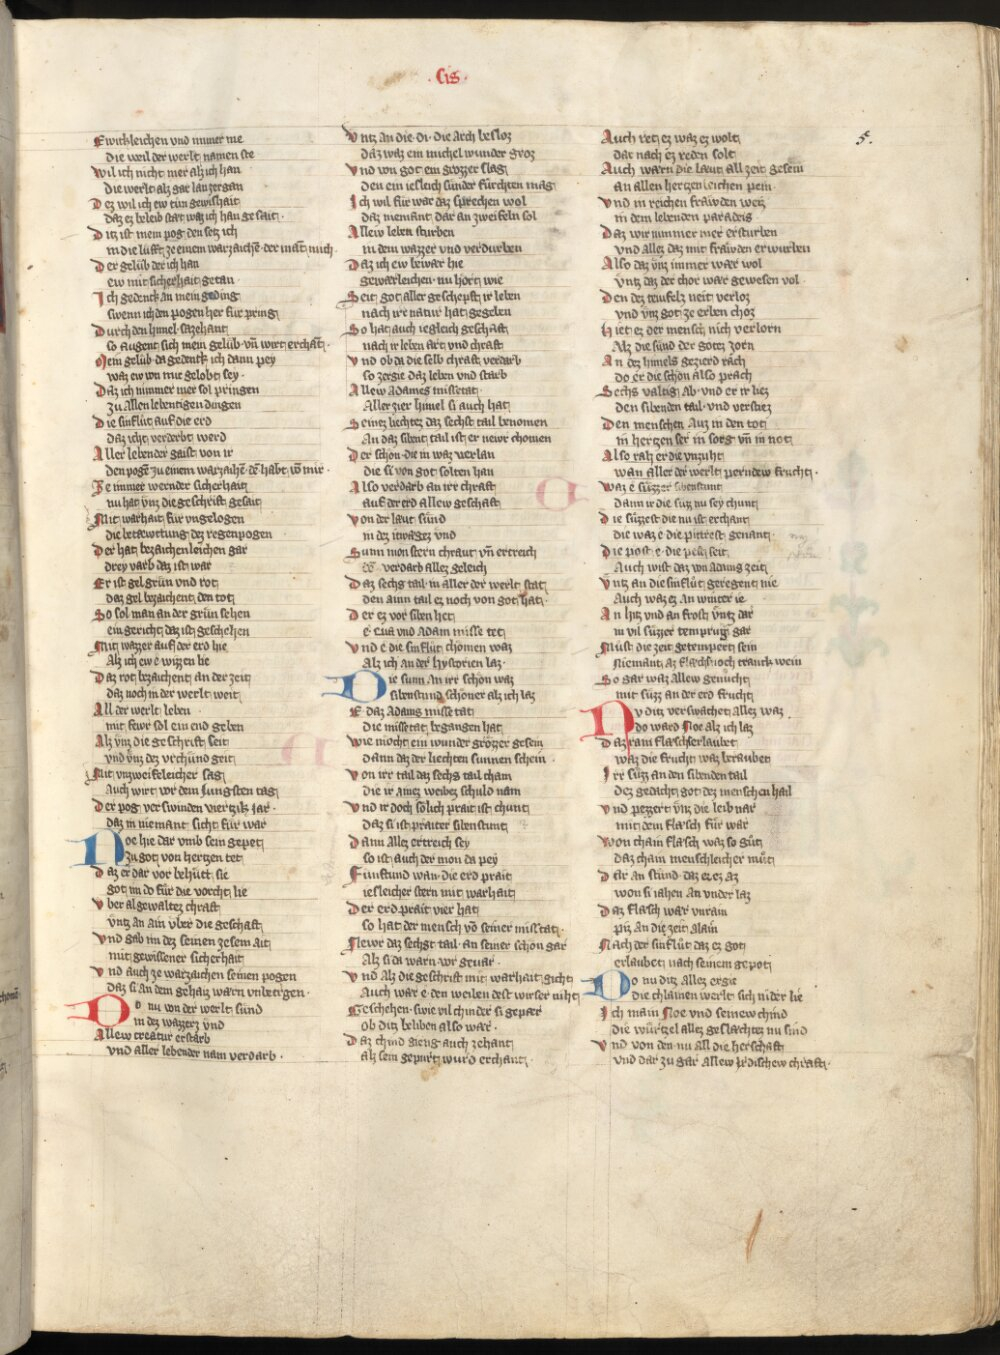 .Cis.
5.
Ewickleichen vnd immer me
die weil der werlt namen ste
Wil ich nicht mer als ich han
die werlt alz gar lan zergan
Dez wil ich ew tün gewishait
daz ez beleib stät waz ich han gesait.
Ditz ist mein pog den setz ich
in die lüfft ze einem warzaichē der mant mich.
Der gelüb der ich han
ew mit sicherhait getan
Ich gedenck an mein geding
swenn ich den pogen her für pring
Durch den himel sazehant
so augent sich mein gelüb vn̄ wirt erchāt.
Mein gelüb da gedenck ich dann pey
waz ew von mir gelobt sey.
Daz ich nimmer mer sol pringen
zu allen lebentigen dingen
Die sinflüt auf die erd
daz icht verderbt werd
Aller lebender gaist von ir
den pogē zu einem warzaichē dē habt vō mir.
Ie immer wernder sicherhait
nu hat vnz die geschrift gesait
Mit warhait für vngelogen
die betewttung dez regenpogen
Der hat bezaichenleichen gar
drey varb daz ist war
Er ist gel grün vnd rot
daz gel bezaichent den tot
So sol man an der grün sehen
ein gericht daz ist geschehen
Mit wazzer auf der erd hie
Alz ich ew e wizzen lie
Daz rot bezaichent an der zeit
daz noch in der werlt weit
All der werlt leben
mit fewr sol ein end geben
Alz vnz die geschrift seit
vnd vnz dez vrchünd geit
Mit vnzweifeleicher sag
Auch wirt vor dem Jungsten tag
Der pog verswinden viertzik jar.
daz in niemant sicht für war
Noe hie dar vmb sein gepet
zu got von hertzen tet
Daz er dar vor behütt sie
got im do für die vorcht lie
Vber al gewaltez chraft
vntz an ain vber die geschaft
Vnd gab im dez seinen zesem ait
mit gewissener sicherhait
Vnd auch ze warzaichen seinen pogen
daz si an dem gehaiz warn vnbetrgen.
Do nu von der werlt sünd
in dez wazzerz vnd
Allew creatur erstarb
vnd aller lebender nam verdarb.
Vntz an die. di. die arch besloz
daz waz ein michel wunder groz
Vnd von got ein grozzer slag
den ein iesleich sünder fürchten mag
Ich wil für war daz sprechen wol
daz niemant dar an zweifeln sol
Allew leben sturben
in dem wazzer vnd verdurben
Daz ich ew bewär hie
gewärleichen. nu hört wie
Seit got aller geschepft ir leben
nach irr natur hat gegeben
So hat auch iegleich geschaft
nach ir leben art vnd chraft
Vnd ob da die selb chraft verdarb
so zergie daz leben vnd starb
Allew Adames missetat
Aller zier himel si auch hat
Seinez liechtez daz sechst tail benomen
An daz sibent tail ist er newr chomen
Der schön. die in waz verlan
die si von got solten han
Also verdarb an irr chraft
auf der erd allew geschaft
Von der laut sünd
in dez wazzez vnd
Sunn mon stern chraut vn̄ ertreich
verdarb allez geleich
Daz sechs tail. in aller der werlt stat
den ainn tail ez noch von got hat.
Der ez vor siben het
e Eua vnd Adam misse tet
Vnd e die sinflüt chomen waz
Alz ich an der hystorien laz.
Die sunn an irr schön waz
sibenstund schöner alz ich laz
E daz Adams missetat
die missetat begangen hat
Wie möcht ein wunder grözzer gesein
dann daz der liechten sunnen schein.
Von irr tail daz sechs tail cham
die ir ainez weibez schuld nam
Vnd ir doch sölich prait ist chunt
daz si ist praiter sibenstunt
Dann allez ertreich sey
so ist auch der mon da pey
Fünfstund wan. die erd prait
iesleicher stern mit warhait
Der erd prait vier hat
so hat der mensch vō seiner missetat.
Newr daz sechst tail. an seiner schön gar
Alz si da warn vor gevar.
Vnd alz die geschrift mit warhait gicht
Auch wär e. den weilen dest wirser niht
Geschehen. swie vil chinder si gepär
ob ditz beliben also wär.
Daz chind gieng auch zehant
alz sein gepürt wurd erchant.
Auch ret ez waz ez wolt
dar nach ez reden solt
Auch wärn die laut all zeit gesein
an allen hertzenleichen pein
Vnd in reichen fräwden weiz
in dem lebenden paradeis
Daz wir nimmer mer ersturben
vnd allez daz mit fräwden erwurben
Also daz vnz immer wär wol
vntz daz der chor wär gewesen vol
Den dez teuifelz neit verloz
vnd vnz got ze erben choz
Hiet ez der mensch nich verlorn
Alz die sünd der gotez zorn
An dez himels gezierd räch
do er die schön also präch
Sechs valtig ab. vnd er ir liez
den sibenden tail. vnd verstiez
Den menschen auz in den tot
in hertzen ser in sorg vn̄ in not
Also rah er die vnzuht
wan aller der werlt perndew frucht.
Waz e süzzer sibenstunt
dann ir die süzz nu sey chunt
Die süzzest die nu ist erchant
die waz e die pittrest genant.
Die post. e. die pest seit
Auch wist daz von Adams zeit
Vntz an die sinflüt geregent nie
Auch waz ez an winter ie
An hitz vnd an frost vntz dar
in vil süzzer temprung gar
Müst die zeit getempert sein
Niemant az flaesch noch tranck wein
So gar waz allew genucht
mit süzz an der erd frucht
Nv ditz verswachet allez waz
do ward Noe alz ich laz
Daz raini flaesch erlaubet
waz die frucht waz beraubet
Irr süzz an den sibenden tail
Dez gedacht got dez menschen hail
Vnd pezzert vnz die leibnar
mit dem flaesch für war
Von chain flaesch waz so güt
daz cham menschleicher müt
Dar an stünd. daz ez ez az
won si iahen an vnder laz
Daz flaesch wär vnrain
piz an die zeit Main
Nach der sinflüt daz ez got
erlaubet nach seinem gepot
Do nu ditz allez ergie
die chlainen werlt sich nider lie
Ich main Noe vnd seinew chind
die würtzel allez geslächtez nu sind
Vnd von den nu all die herschaft
vnd dar zu gar allew Irdischew chraft.